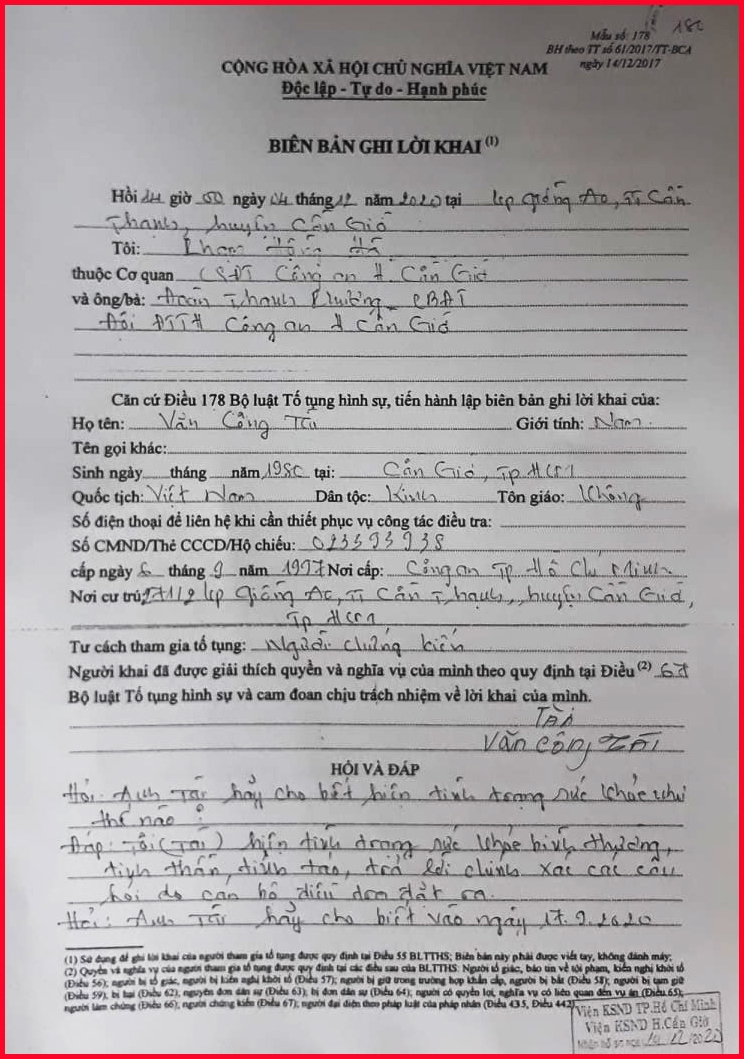 180
Mẫu số: 178
BH theo TT số 61/2017/TT-BCA
ngày 14/12/2017
CỘNG HÒA XÃ HỘI CHỦ NGHĨA VIỆT NAM
Độc lập - Tự do - Hạnh phúc
BIÊN BẢN GHI LỜI KHAI (1)
Hồi 14 giờ 00 ngày 04 tháng 12 năm 2020 tại kp Giồng Ao, TT Cần
Thạnh, huyện Cần Giờ
Tôi: Phạm Hồng
thuộc Cơ quan CSĐT Công an H. Cần Giờ
và ông/bà: Đoàn Thanh Phương CBĐT
Đội ĐTTH Công an H Cần Giờ
Căn cứ Điều 178 Bộ luật Tố tụng hình sự, tiến hành lập biên bản ghi lời khai của:
Họ tên: Văn Công Tài Giới tính: Nam
Tên gọi khác:
Sinh ngày tháng năm 1980 tại: Cần Giờ, Tp HCM
Quốc tịch: Việt Nam Dân tộc: Kinh Tôn giáo: Không
Số điện thoại để liên hệ khi cần thiết phục vụ công tác điều tra:
Số CMND/Thẻ CCCD/Hộ chiếu: 023393938
cấp ngày 6 tháng 9 năm 1997 Nơi cấp: Công an Tp Hồ Chí Minh
Nơi cư trú: kp Giồng Ao, TT Cần Thạnh, huyện Cần Giờ,
Tp HCM
Tư cách tham gia tố tụng: Người chứng kiến
Người khai đã được giải thích quyền và nghĩa vụ của mình theo quy định tại Điều (2) 67
Bộ luật Tố tụng hình sự và cam đoan chịu trách nhiệm về lời khai của mình.
Tài
Văn Công Tài
HỎI VÀ ĐÁP
Hỏi: Anh Tài hãy cho biết hiện tình trạng sức khỏe như
thế nào?
Đáp: Tôi (Tài) hiện tình trạng sức khỏe bình thường,
tinh thần tỉnh táo, trả lời chính xác các câu
hỏi do cán bộ điều tra đặt ra.
Hỏi: Anh Tài hãy cho biết vào ngày 17.9.2020
(1) Sử dụng để ghi lời khai của người tham gia tố tụng được quy định tại Điều 55 BLTTHS; Biên bản này phải được viết tay, không đánh máy;
(2) Quyền và nghĩa vụ của người tham gia tố tụng được quy định tại các điều sau của BLTTHS: Người tố giác, báo tin về tội phạm, kiến nghị khởi tố
(Điều 56); người bị tố giác, người bị kiến nghị khởi tố (Điều 57); người bị giữ trong trường hợp khẩn cấp, người bị bắt (Điều 58); người bị tạm giữ
(Điều 59), bị hại (Điều 62); nguyên đơn dân sự (Điều 63); bị đơn dân sự (Điều 64); người có quyền lợi, nghĩa vụ có liên quan đến vụ án (Điều 65);
người làm chứng (Điều 66); người chứng kiến (Điều 67); người đại diện theo pháp luật của pháp nhân (Điều 435, Điều 442)
Viện KSND TP.Hồ Chí Minh
Viện KSND H.Cần Giờ
Nhận hồ sơ ngày 10/12/2020